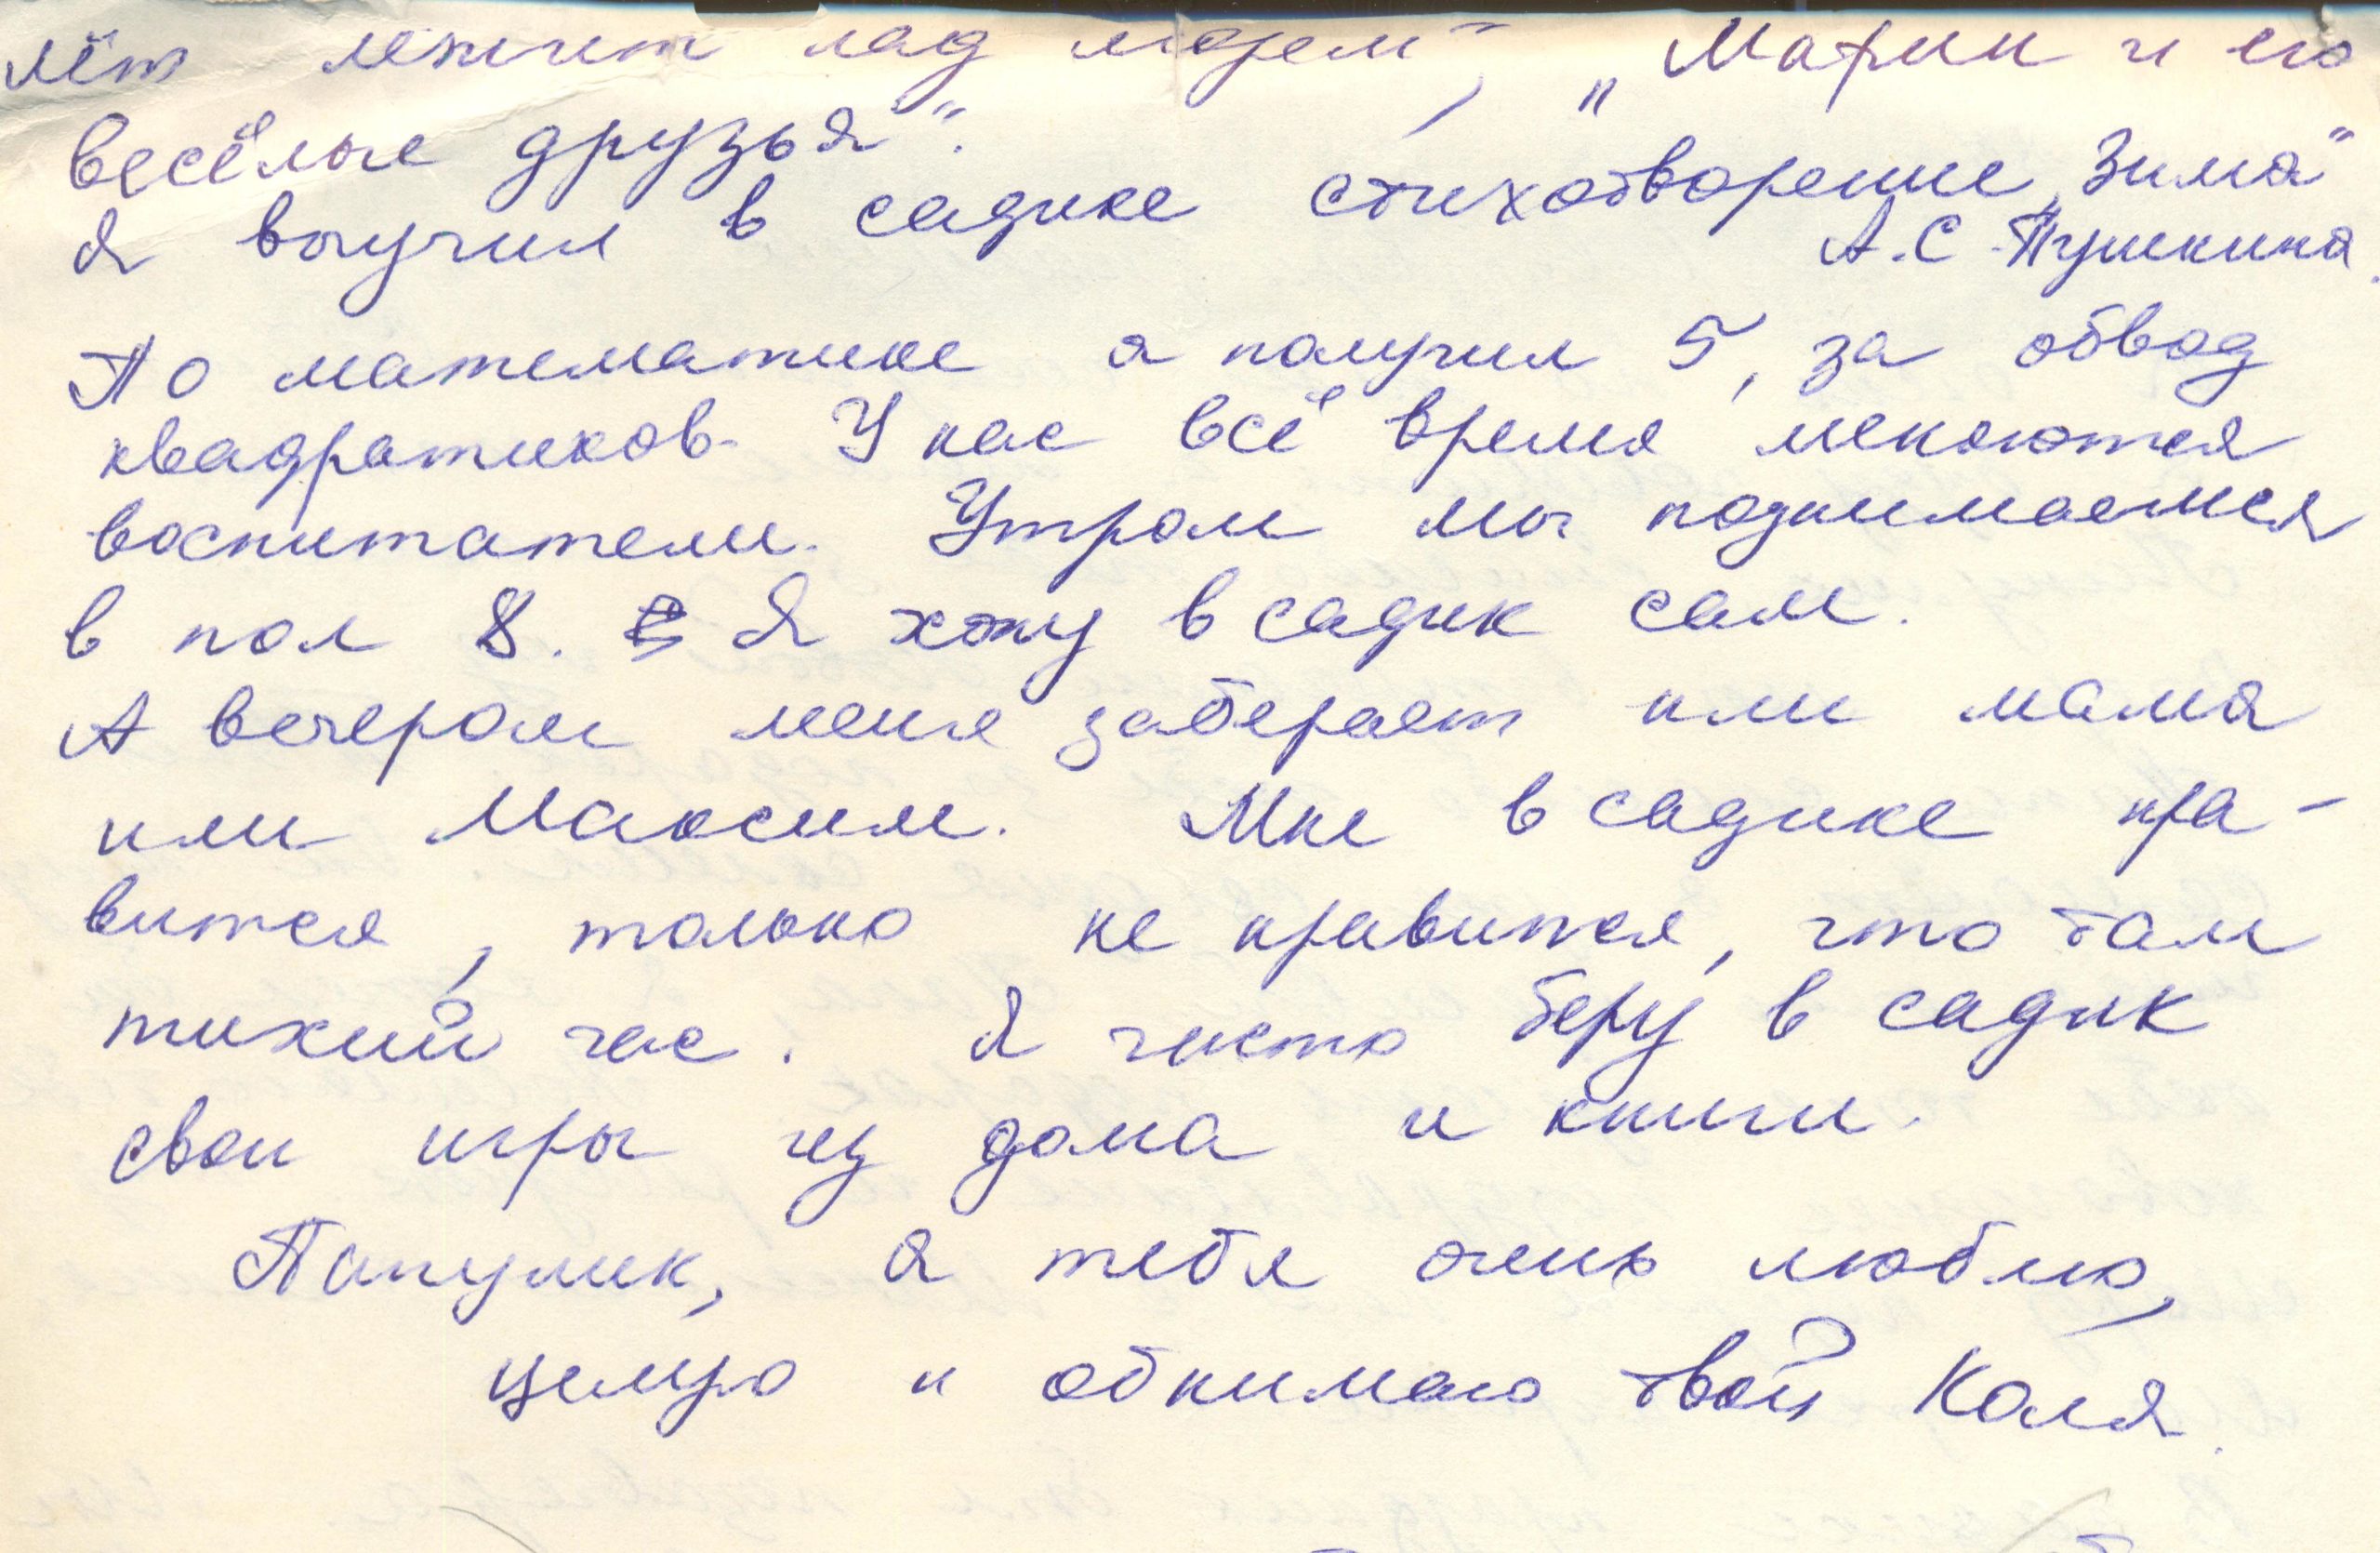 лёт летит над морем", „Мафин и его
весёлые друзья".
Я выучил в садике стихотворение „Зима"
А.С. Пушкина.
По математике я получил 5, за обвод
квадратиков. У нас всё время меняются
воспитатели. Утром мы поднимаемся
в пол 8. Я хожу в садик сам.
А вечером меня заберает или мама
или Максим. Мне в садике нра-
вится, только не нравится, что там
тихий час. Я часто беру в садик
свои игры из дома и книги.
Папулик, я тебя очень люблю,
целую и обнимаю твой Коля.